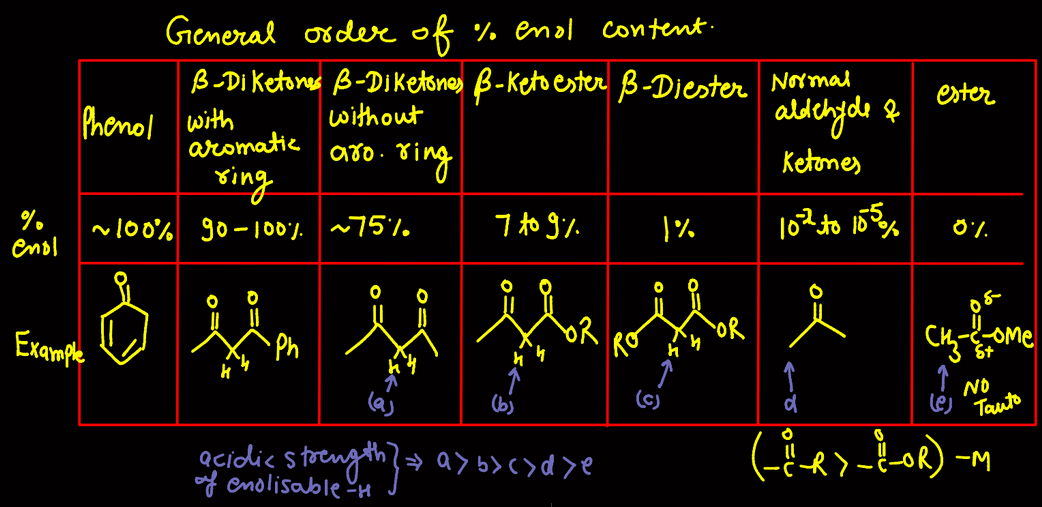 General order of % enol content.
Phenol
β-Diketones
with
aromatic
ring
β-Diketones
without
aro. ring
β-Ketoester
β-Diester
Normal
aldehyde &
Ketones
ester
% enol
~100%
90-100%
~75%
7 to 9%
1%
10⁻² to 10⁻⁵%
0%
Example
O
O O
H H
Ph
O O
H H
(a)
O O
OR
H H
(b)
O O
RO OR
H H
(c)
O
d
O δ-
CH₃-C-OMe
δ+
(e) NO
Tauto
acidic strength
of enolisable -H } ⇒ a > b > c > d > e
O O
(-C-R > -C-OR) -M